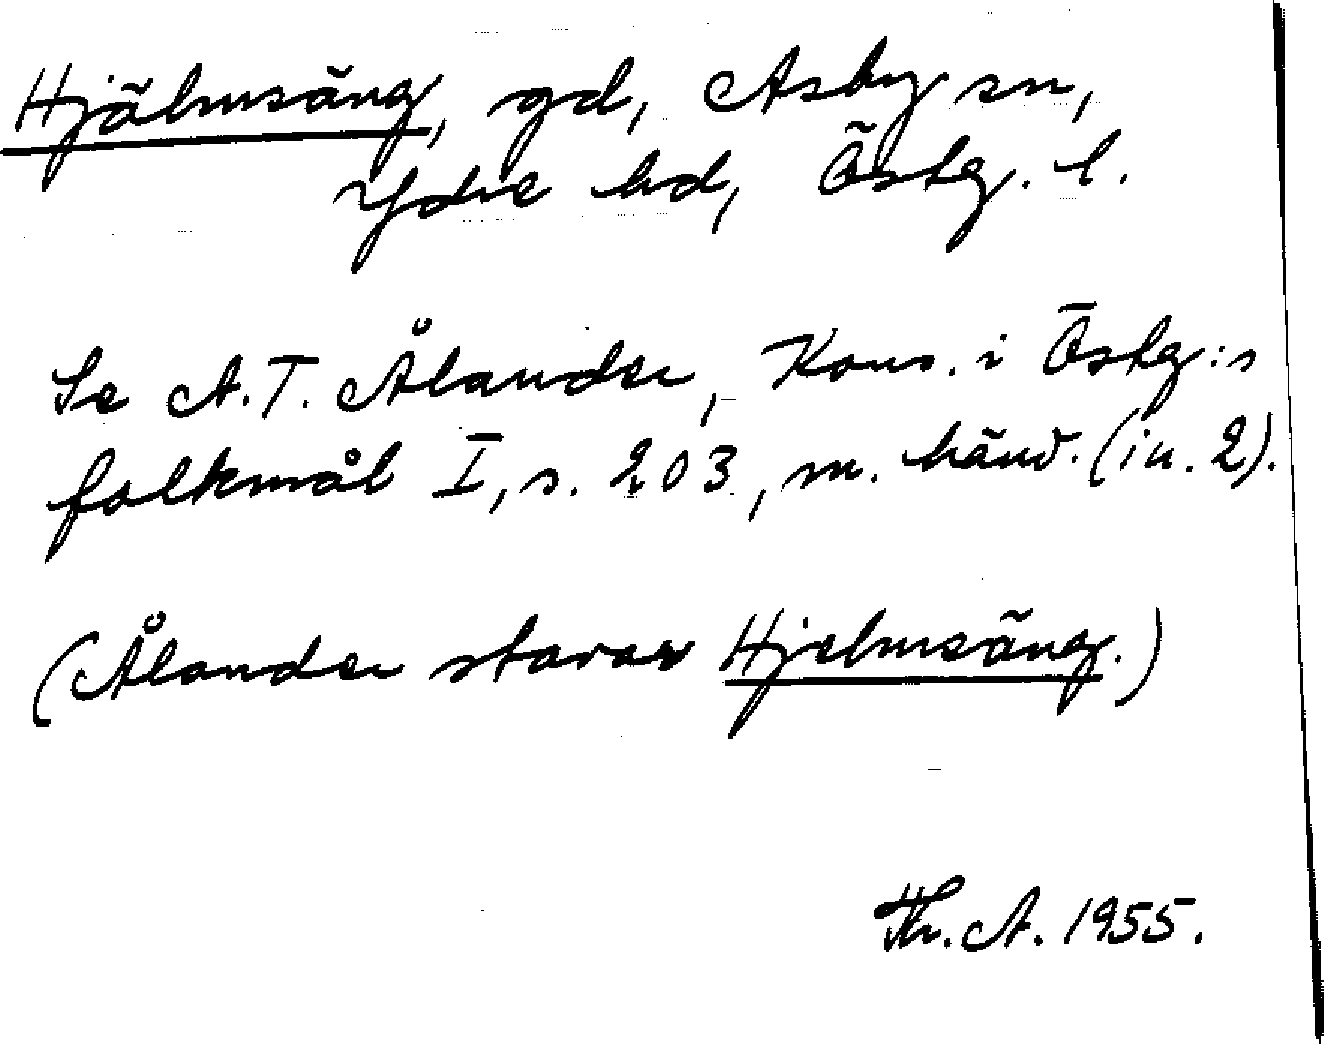 Hjälmsäng, gd, Asby sn,
Ydre hd, Östg. l.
Se A. T. Ålander, Kons. i Östg:s
folkmål I, s. 203, m. hänv. (in. 2).
(Ålander stavar Hjelmsäng.)
Th. A. 1955.